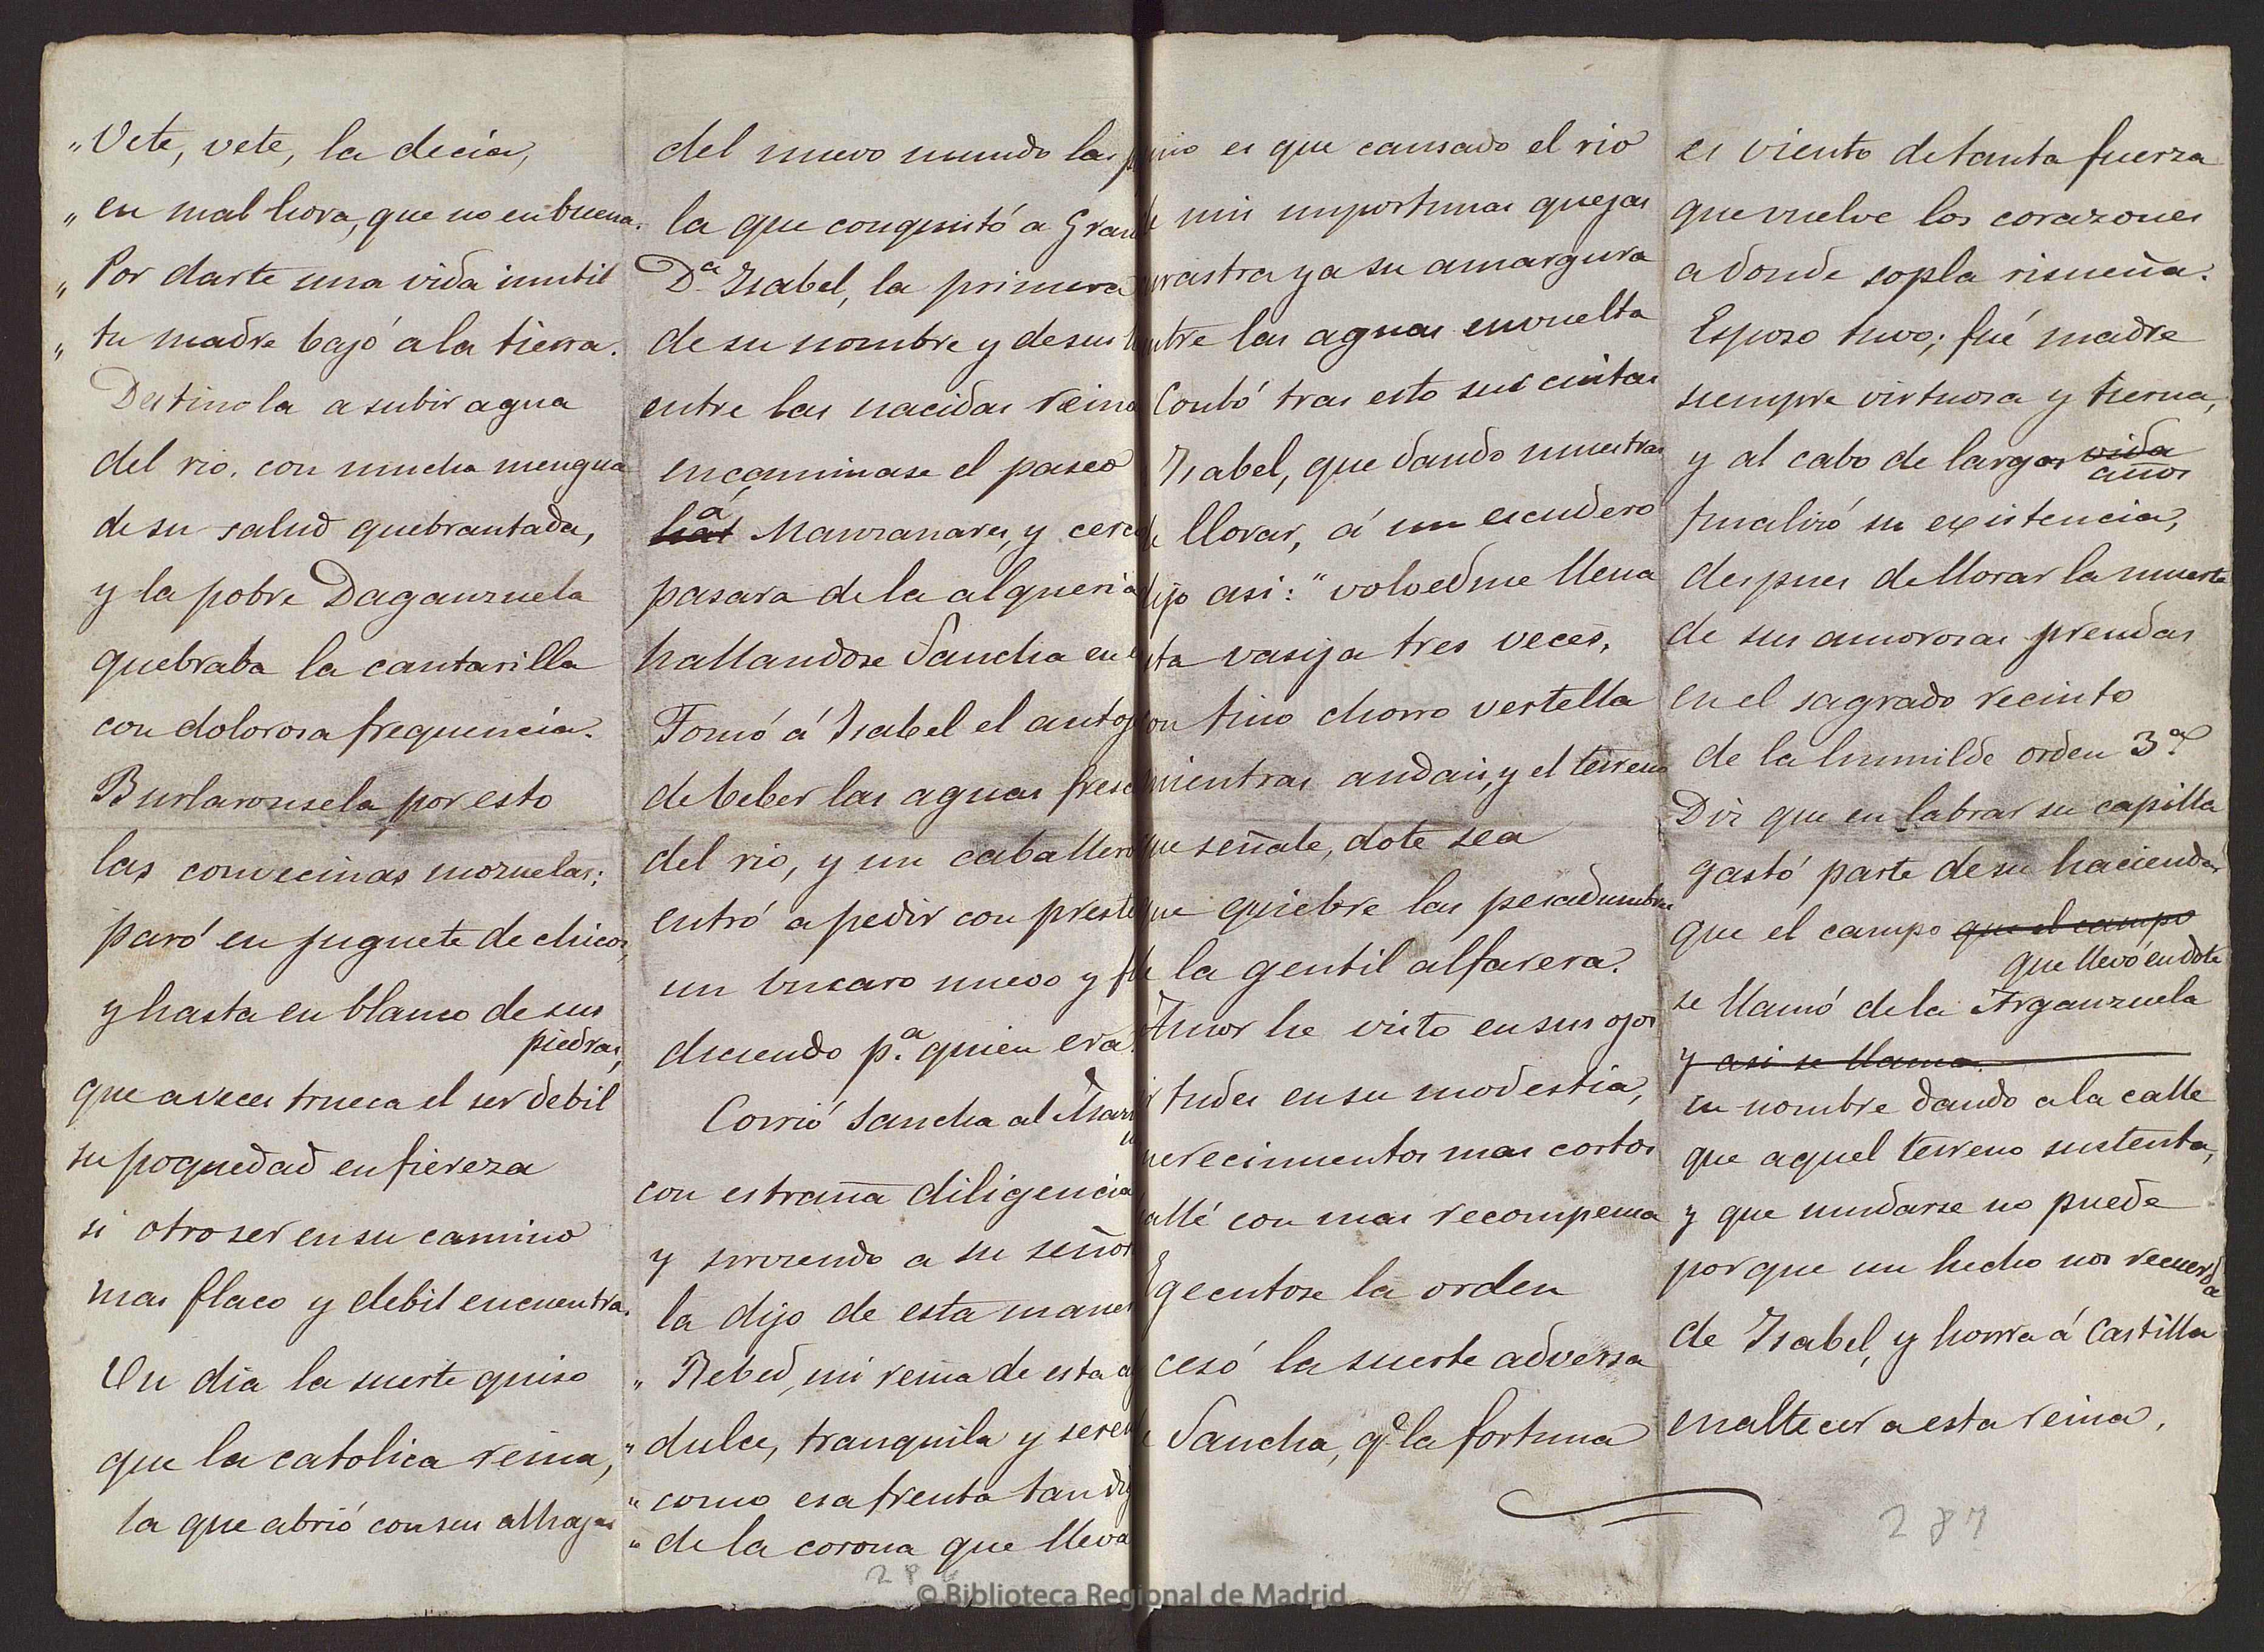 "Vete, vete, la decia,
"en mal hora, que no en buena.
"Por darte una vida inutil
"tu madre bajó á la tierra.
Destinola a subir agua
del rio, con mucha mengua
de su salud quebrantada,
y la pobre Daganzuela
quebraba la cantarilla
con dolorosa frequencia.
Burlaronsela por esto
las convecinas mozuelas;
paró en juguete de chicos,
y hasta en blanco de sus
piedras,
que a veces trueca el ser debil
su poquedad en fiereza
si otro ser en su camino
mas flaco y debil encuentra.
Un dia la suerte quiso
que la catolica reina,
la que abrió con sus alhajas
del nuevo mundo las
la que conquistó a Gran
D.ª Isabel, la primera
de su nombre y de sus
entre las nacidas reina
encaminase el paseo
hat á Manzanares, y cerca
pasara de la alqueria
hallandose Sancha en
Tomó á Isabel el antoj
de beber las aguas fresc
del rio, y un caballero
entró a pedir con preste
un bucaro nuevo y
diciendo p.ª quien era.
Corrió Sancha al Man
con estraña diligencia
y sirviendo a su señor
la dijo de esta maner
"Bebed, mi reina de esta
"dulce, tranquila y seren
"como esa frente tan di
"de la corona que lleva
286
es que cansado el rio
de mis importunas quejas
arrastra ya su amargura
entre las aguas envuelta
Contó tras esto sus cuitas
Isabel, que dando muestras
de llorar, á un escudero
dijo asi: "volvedme llena
esta vasija tres veces,
con fino chorro vertella
mientras andais, y el terreno
que señale, dote sea
que quiebre las pesadumbres
de la gentil alfarera.
Amor he visto en sus ojos
virtudes en su modestia,
merecimientos mas cortos
hallé con mas recompensa
Egecutose la orden
cesó la suerte adversa
de Sancha, q.e la fortuna
es viento de tanta fuerza
que vuelve los corazones
a donde sopla risueña.
Esposo tuvo; fué madre
siempre virtuosa y tierna,
y al cabo de largos vida
años
finalizó su existencia,
despues de llorar la muerte
de sus amorosas prendas
en el sagrado recinto
de la humilde orden 3.ª
Diz que en labrar su capilla
gastó parte de su hacienda
que el campo que el campo
que llevó en dote
se llamó de la Arganzuela
y asi se llama.
su nombre dando a la calle
que aquel terreno sustenta,
y que mudarse no puede
porque un hecho nos recuerda
de Isabel, y honra á Castilla
enaltecer a esta reina.
287
© Biblioteca Regional de Madrid